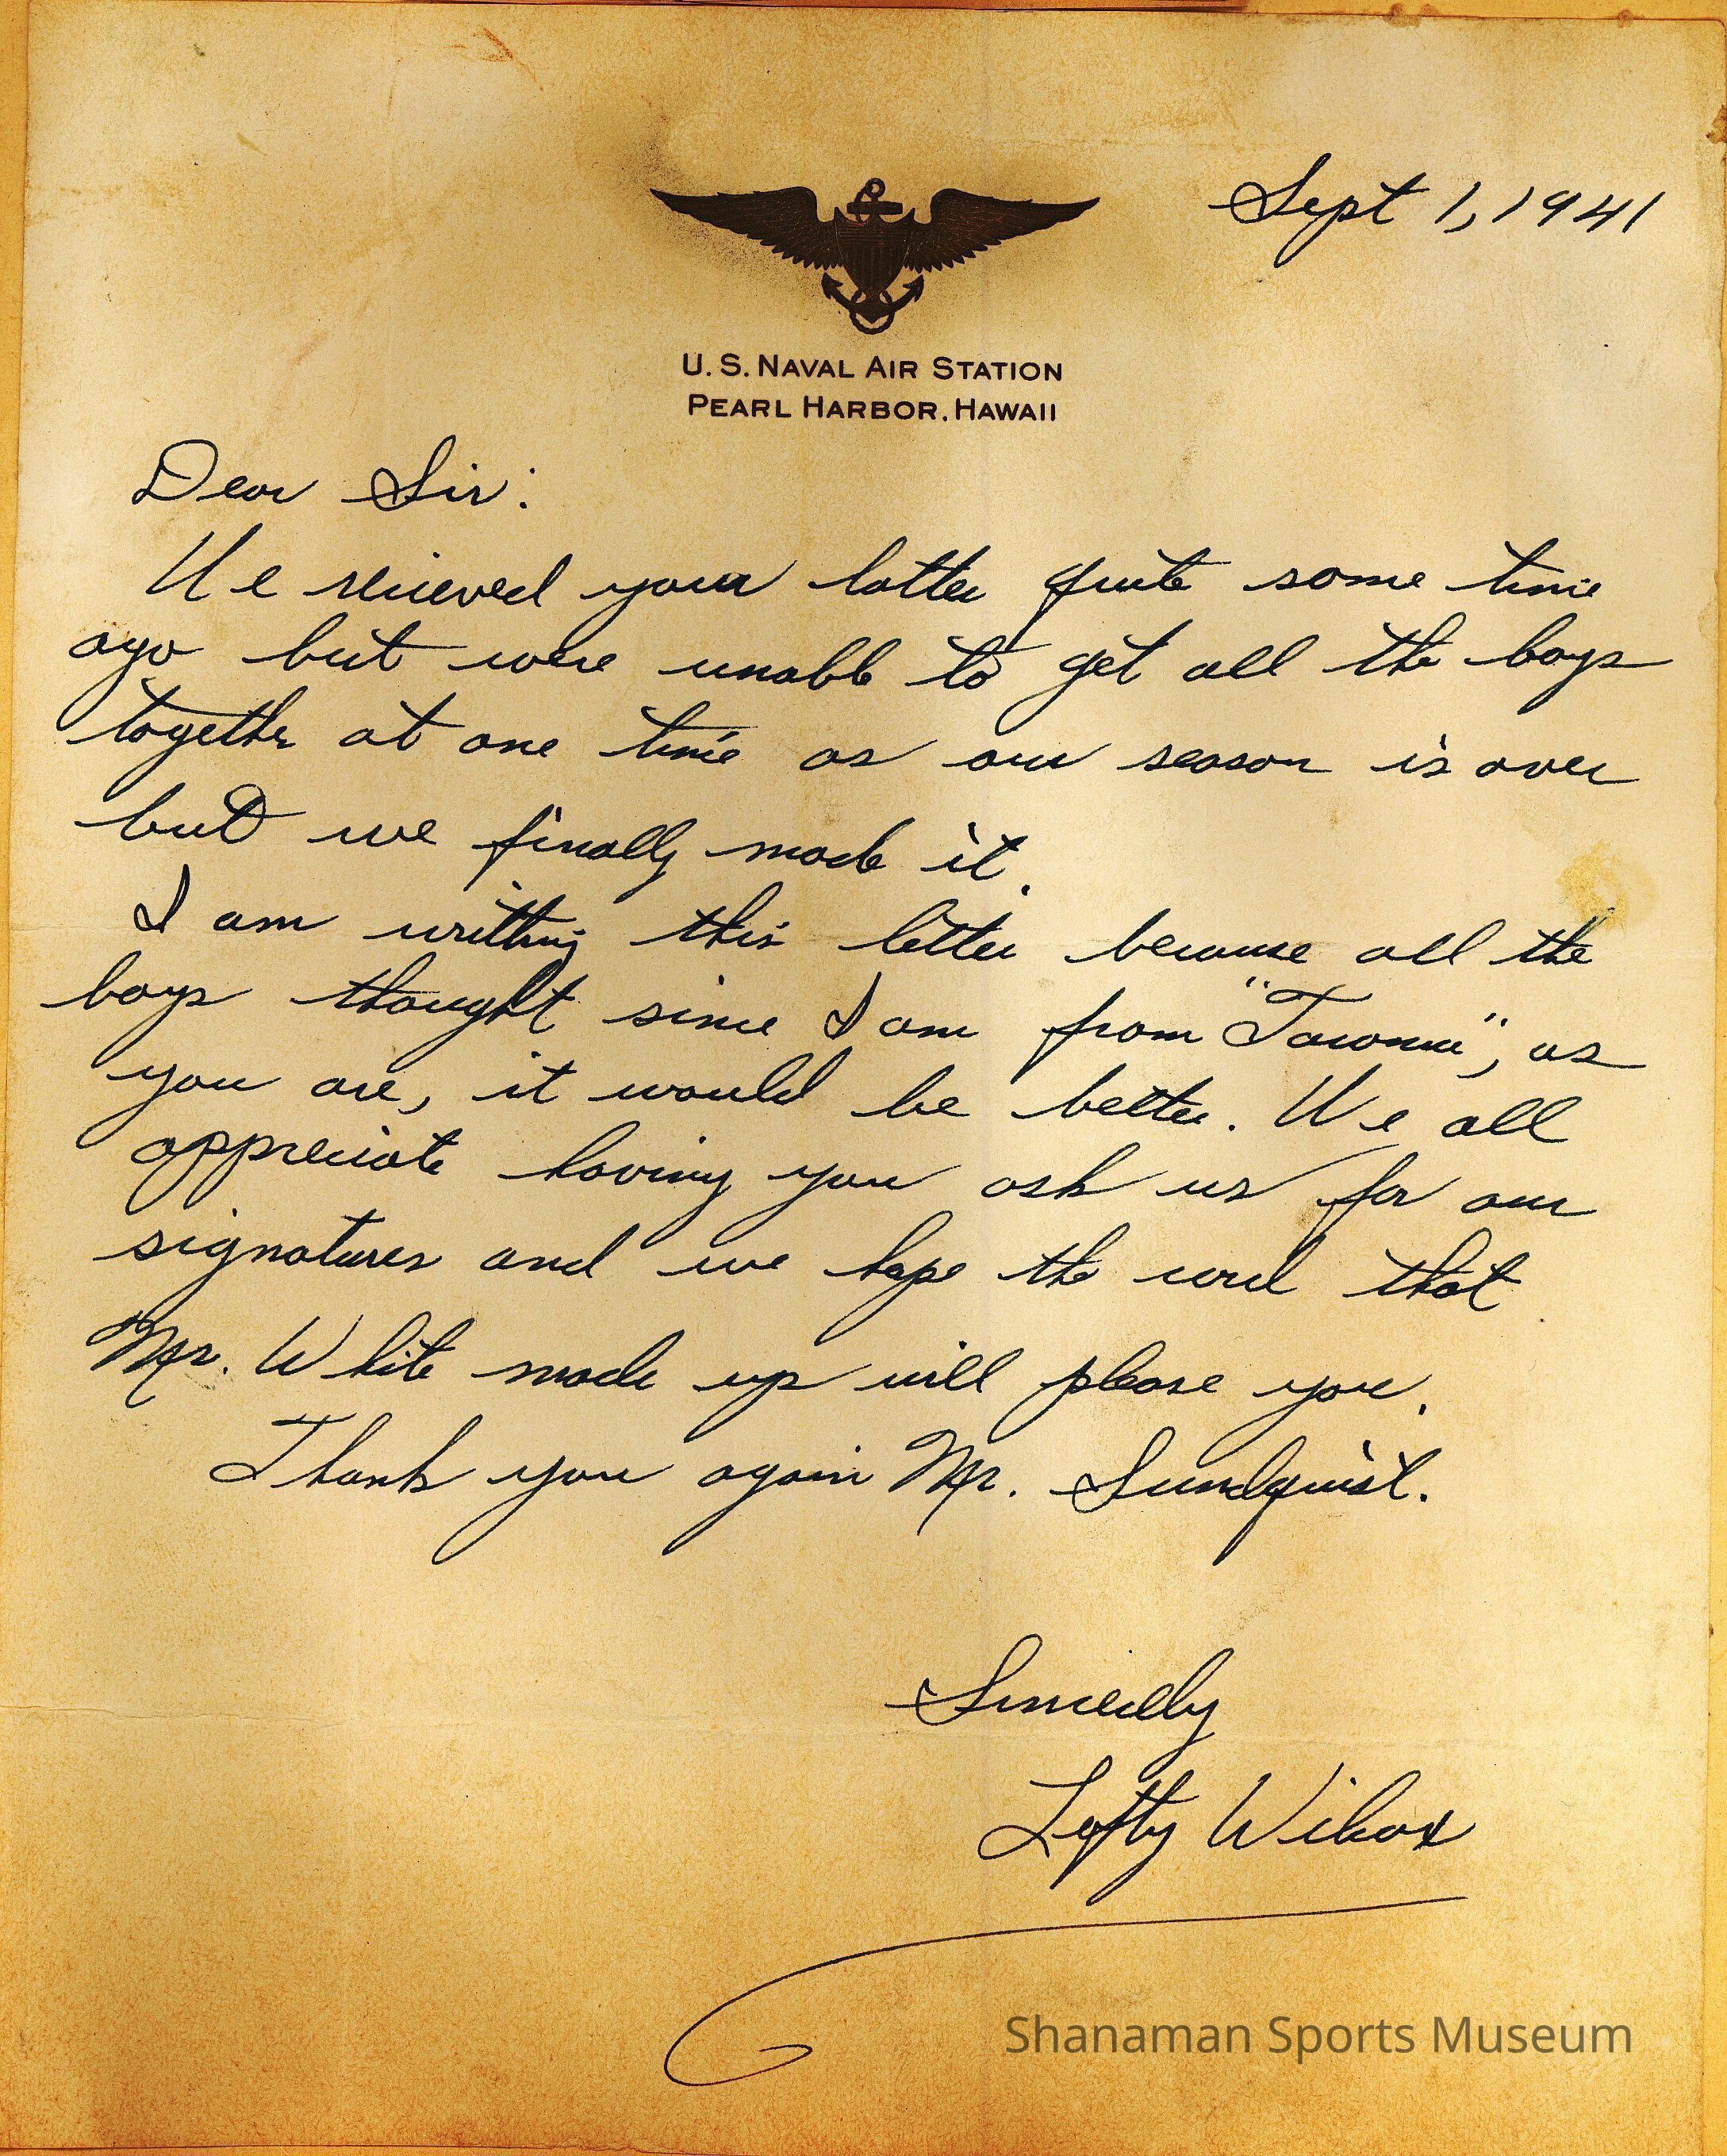 Sept 1, 1941
U. S. NAVAL AIR STATION
PEARL HARBOR, HAWAII
Dear Sir:
We recieved your letter quite some time
ago but were unable to get all the boys
together at one time as our season is over
but we finally made it.
I am writting this letter because all the
boys thought since I am from "Tacoma", as
you are, it would be better. We all
appreciate having you ask us for our
signatures and we hope the card that
Mr. White made up will please you.
Thank you again Mr. Sundquist.
Sincerelly
Lefty Wilcox
Shanaman Sports Museum